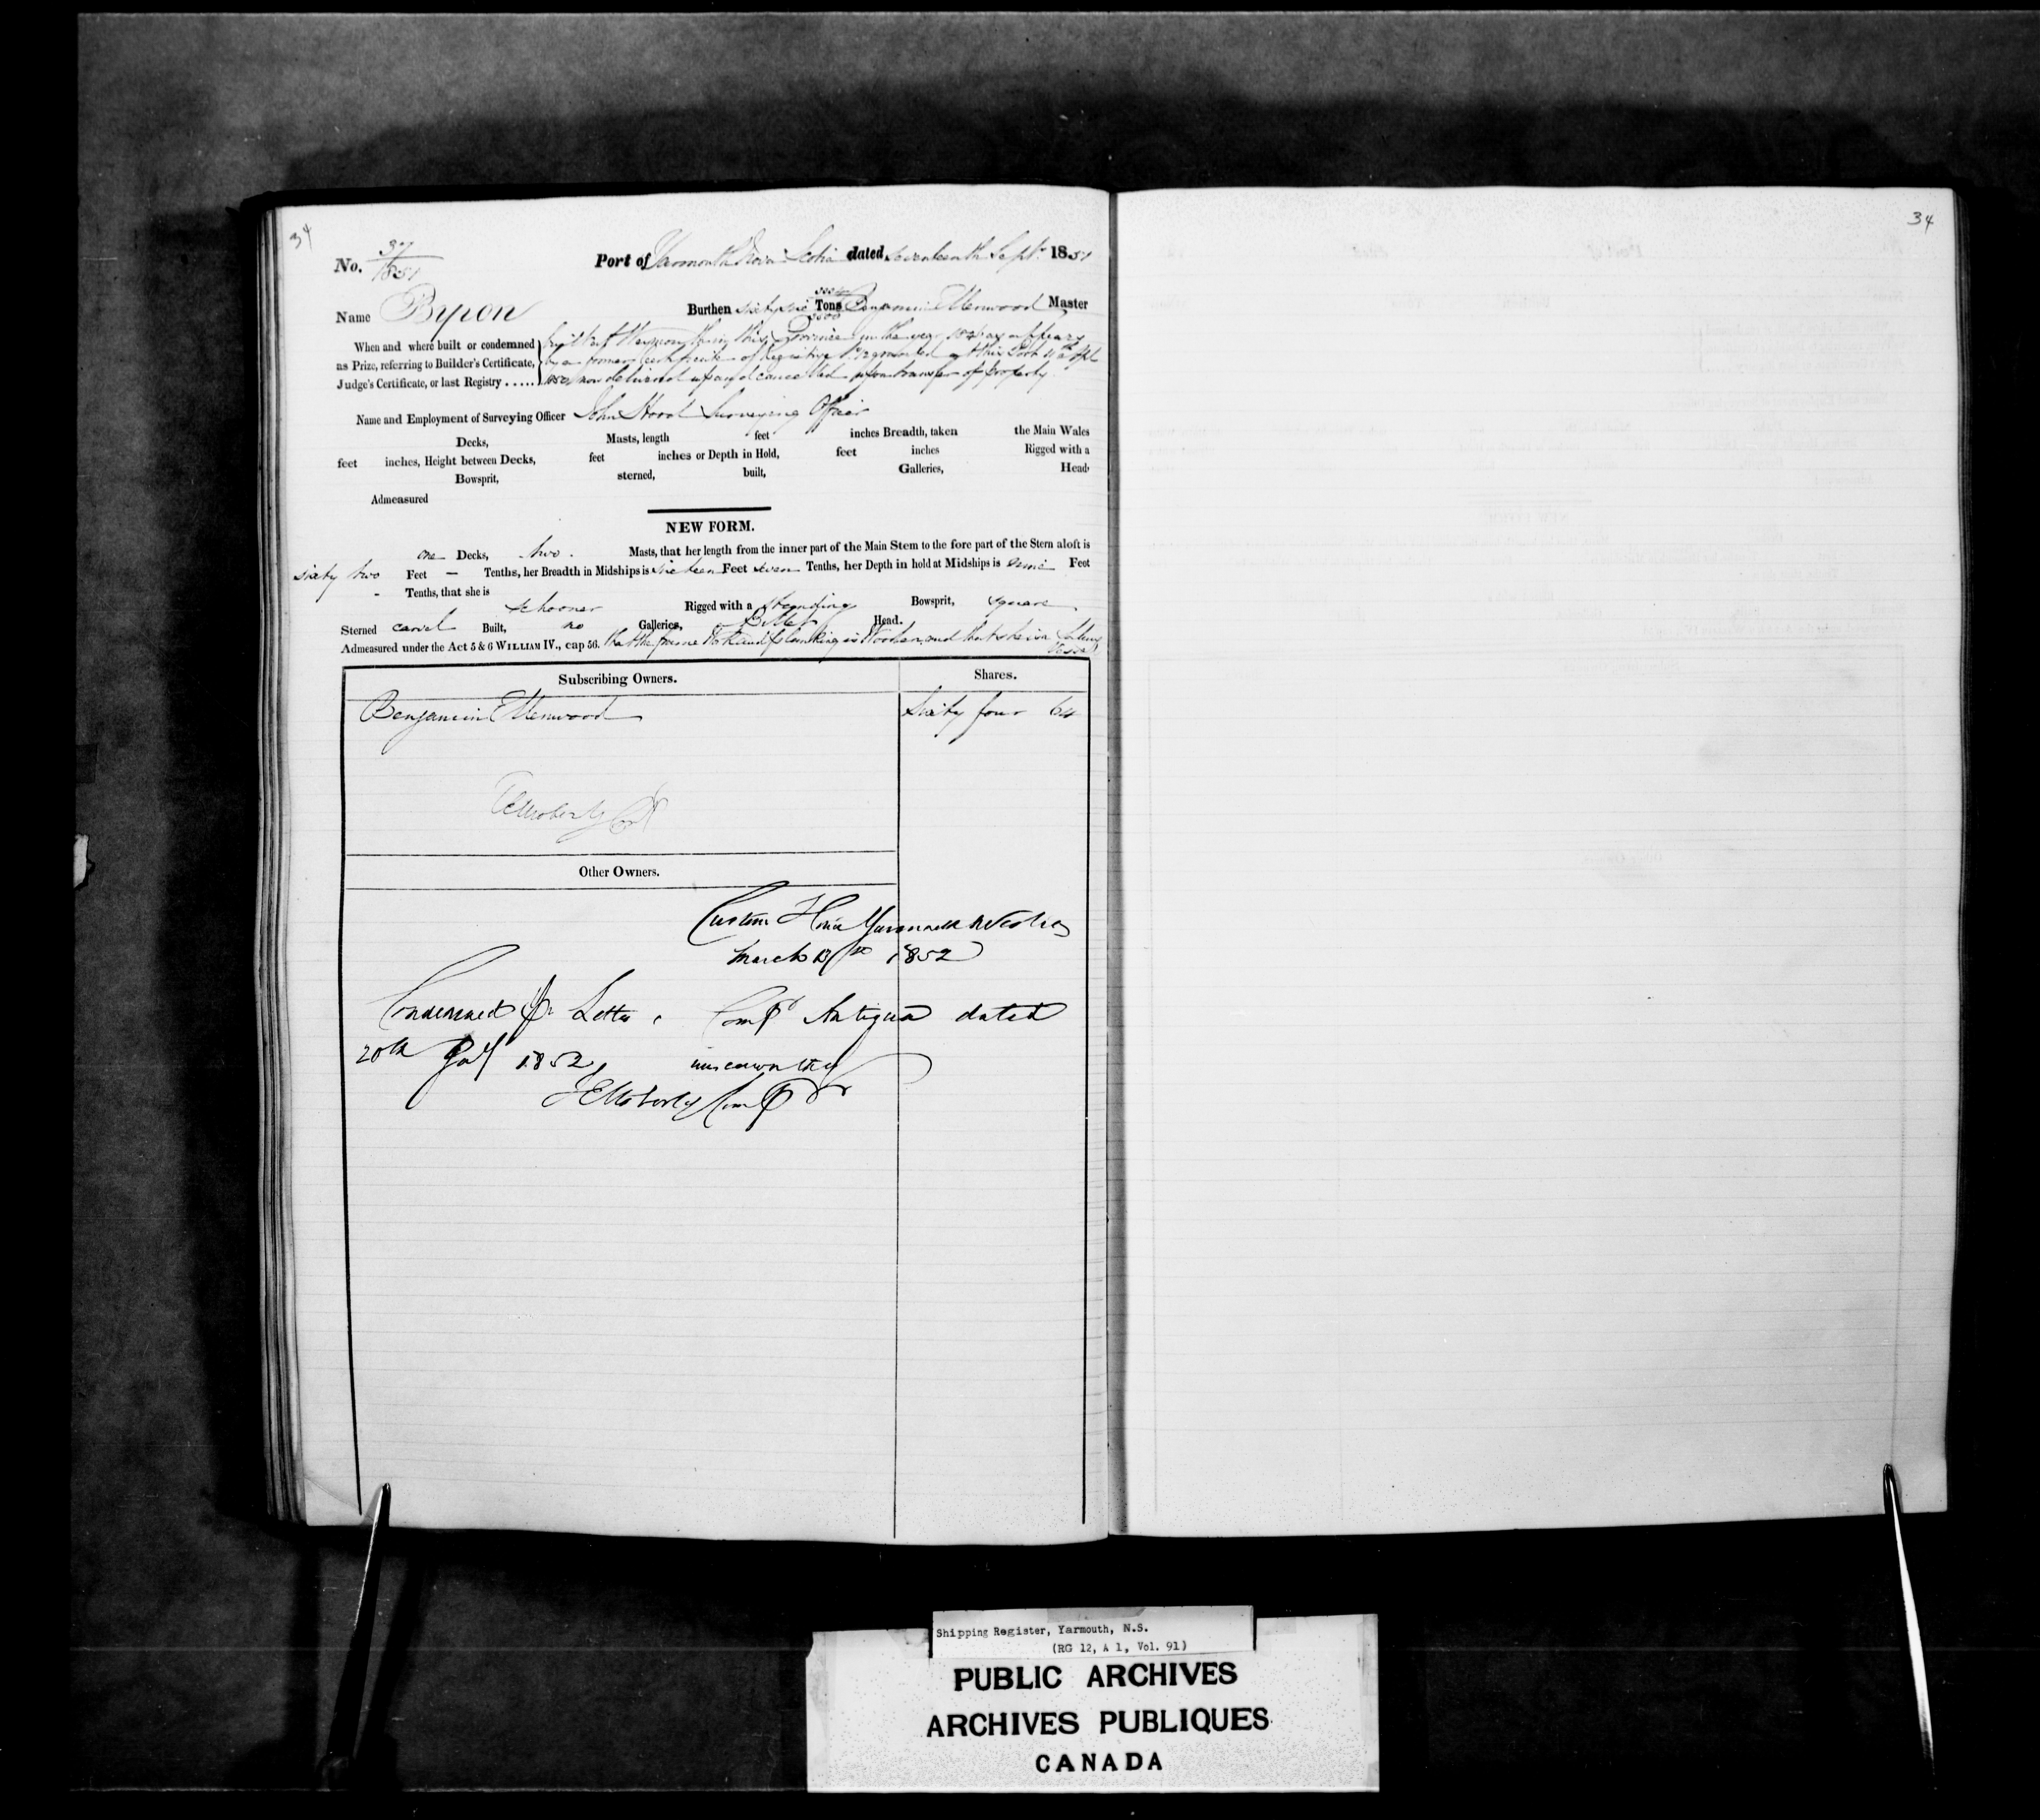 34
34
No. 37/1851
Port of Yarmouth Nova Scotia dated Seventeenth Sept. 1851
Name Byron
Burthen sixty six Tons 3500 Benjamin Ellenwood Master
When and where built or condemned
as Prize, referring to Builder's Certificate,
Judge's Certificate, or last Registry.....
built at in this Province in the year as appears
by a former certificate of Registry granted at this Port
now delivered up and cancelled upon transfer of property.
Name and Employment of Surveying Officer John Hood Surveying Officer
Decks, Masts, length feet inches Breadth, taken the Main Wales
feet inches, Height between Decks, feet inches or Depth in Hold, feet inches Rigged with a
Bowsprit, sterned, built, Galleries, Head
Admeasured
NEW FORM.
one Decks, two. Masts, that her length from the inner part of the Main Stem to the fore part of the Stern aloft is
sixty two Feet — Tenths, her Breadth in Midships is sixteen Feet seven Tenths, her Depth in hold at Midships is Feet
- Tenths, that she is
schooner Rigged with a standing Bowsprit, square
Sterned carvel Built, no Galleries, Billet Head.
Admeasured under the Act 5 & 6 WILLIAM IV., cap 56. that the frame and planking is Wooden and that she is a Sailing
Vessel
Subscribing Owners. Shares.
Benjamin Ellenwood Sixty four 64
Moberly
Other Owners.
Custom House Yarmouth N Scotia
March 1852
Condemned pr Letter Compt Antigua dated
20th 1852, unseaworthy
Moberly Compr
Shipping Register, Yarmouth, N.S.
(RG 12, A 1, Vol. 91)
PUBLIC ARCHIVES
ARCHIVES PUBLIQUES
CANADA